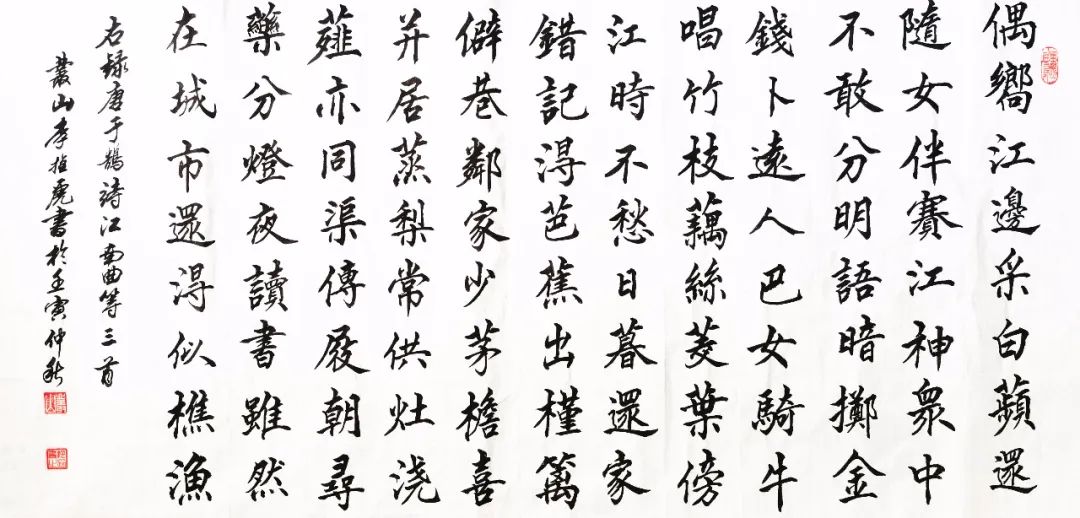 偶嚮江邊采白蘋還
隨女伴賽江神衆中
不敢分明語暗擲金
錢卜遠人巴女騎牛
唱竹枝藕絲菱葉傍
江時不愁日暮還家
錯記得芭蕉出槿篱
僻巷鄰家少茅檐喜
并居蒸梨常供灶浇
薤亦同渠傳屐朝尋
藥分燈夜讀書雖然
在城市還得似樵漁
右録唐于鵠詩江南曲等三首
山李虎書於壬寅仲秋